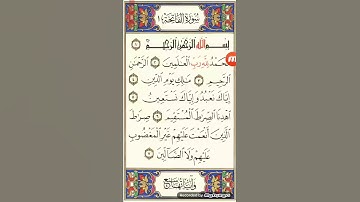 سُورَةُ ٱلْفَاتِحَةِ ١
بِسْمِ ٱللَّهِ ٱلرَّحْمَٰنِ ٱلرَّحِيمِ ١
ٱلْحَمْدُ لِلَّهِ رَبِّ ٱلْعَٰلَمِينَ ٢ ٱلرَّحْمَٰنِ
ٱلرَّحِيمِ ٣ مَٰلِكِ يَوْمِ ٱلدِّينِ ٤
إِيَّاكَ نَعْبُدُ وَإِيَّاكَ نَسْتَعِينُ ٥
ٱهْدِنَا ٱلصِّرَٰطَ ٱلْمُسْتَقِيمَ ٦ صِرَٰطَ
ٱلَّذِينَ أَنْعَمْتَ عَلَيْهِمْ غَيْرِ ٱلْمَغْضُوبِ
عَلَيْهِمْ وَلَا ٱلضَّآلِّينَ ٧